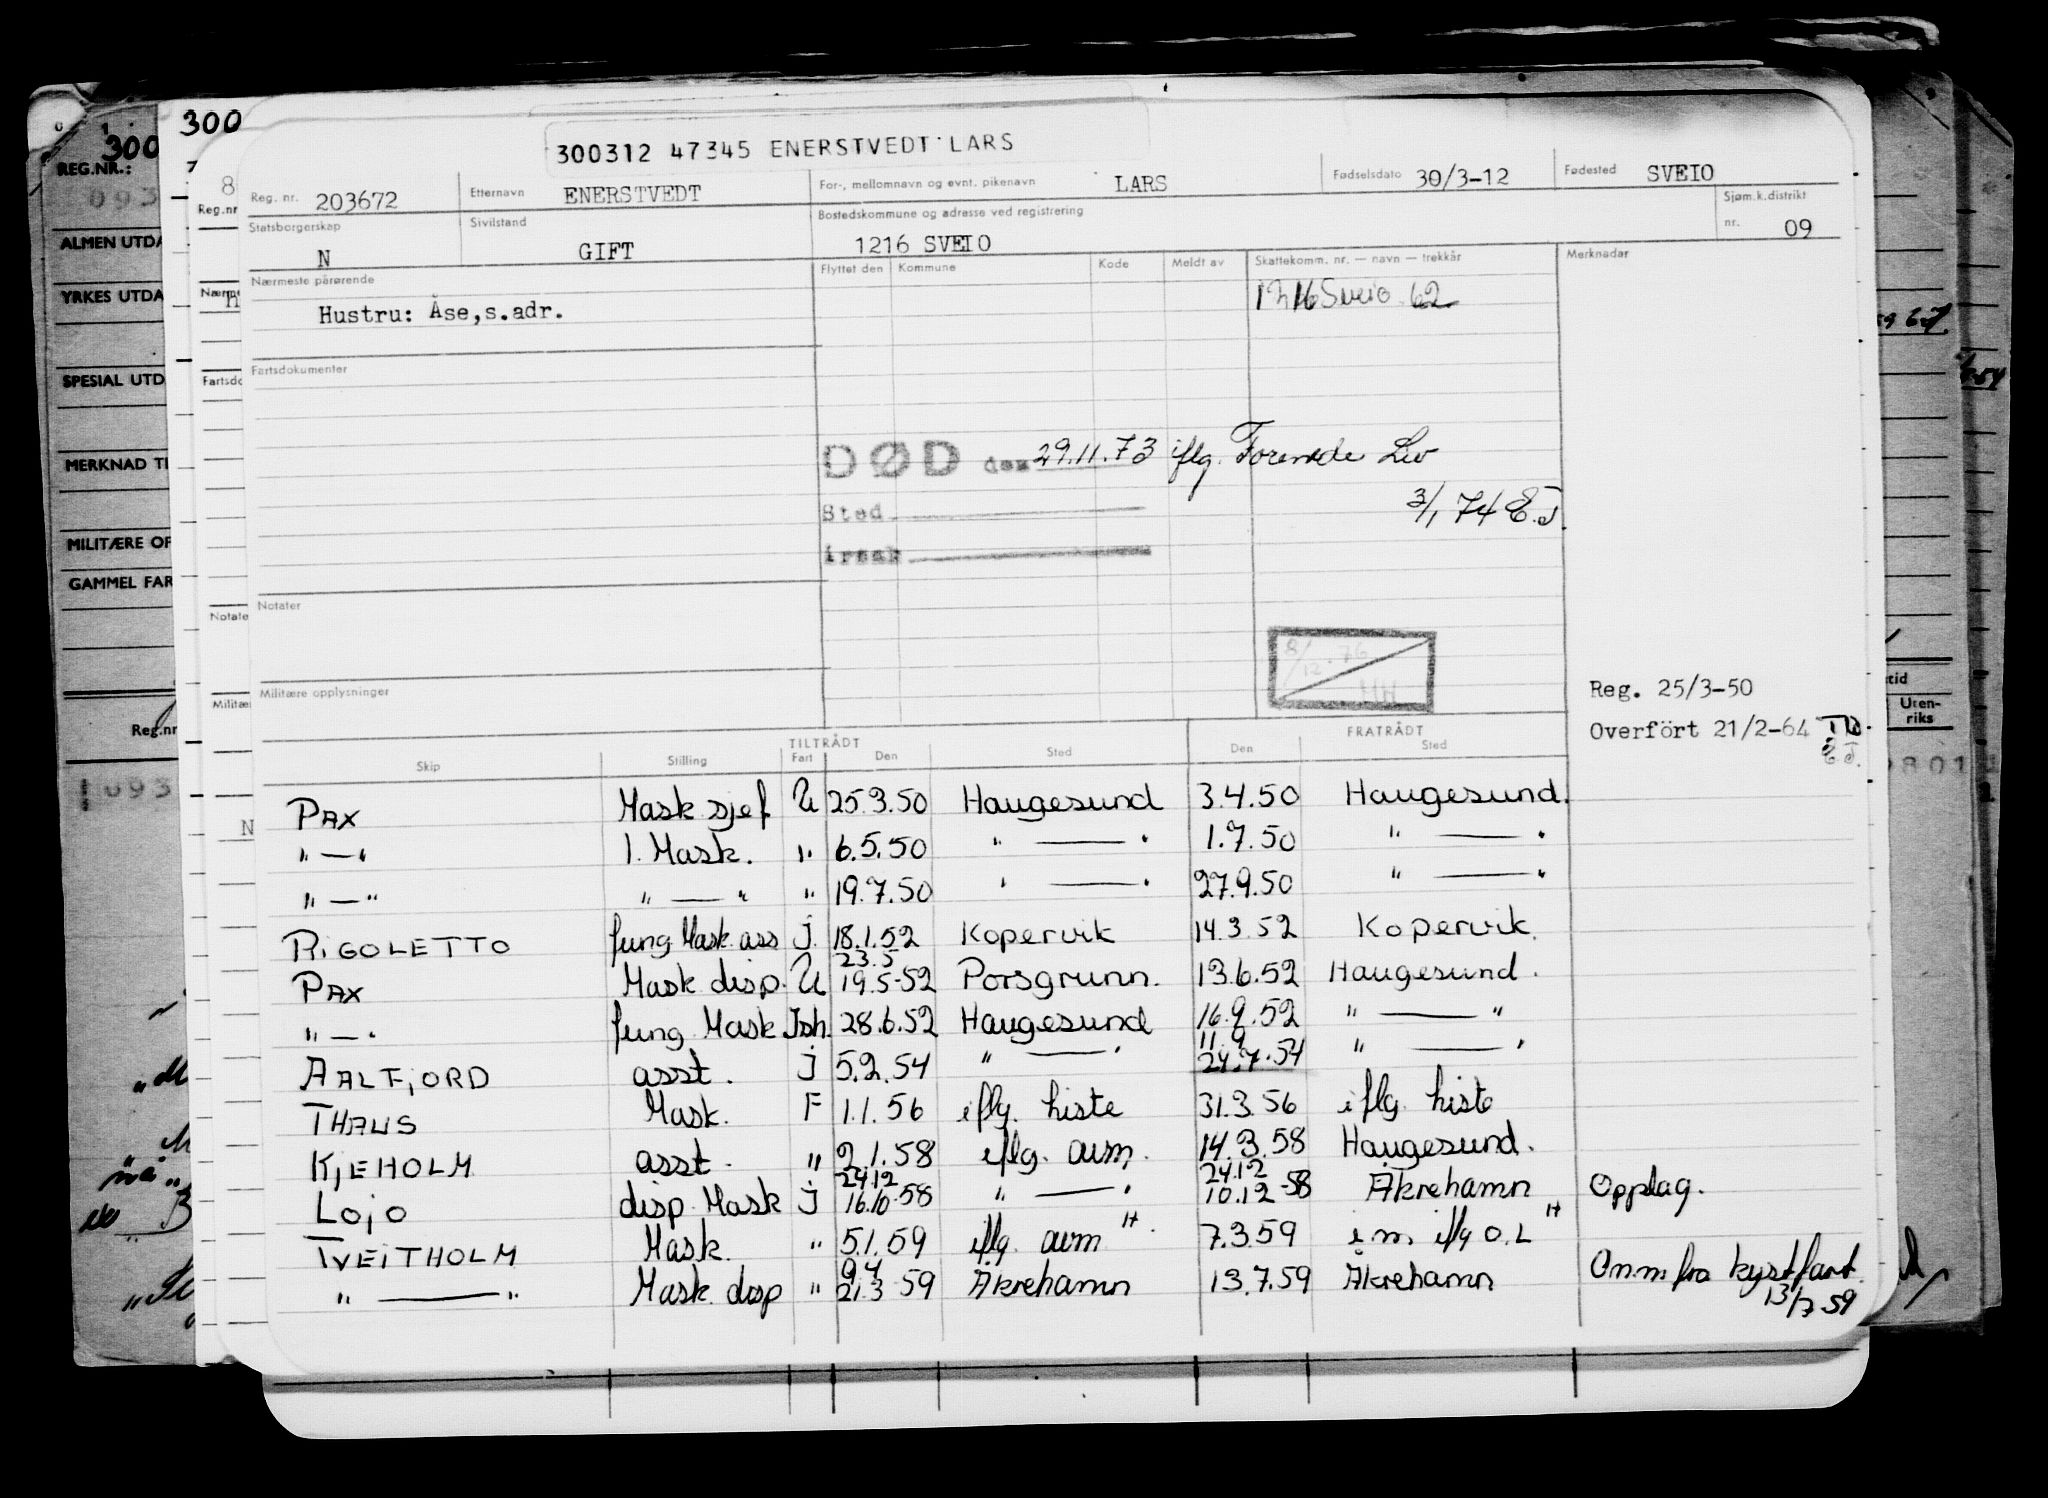 300
300
300312 47345 ENERSTVEDT LARS
REG.NR.:
093
8
Reg.nr
Reg. nr. 203672 Etternavn ENERSTVEDT For-, mellomnavn og evnt. pikenavn LARS Fødselsdato 30/3-12 Fødested SVEIO
Statsborgerskap N Sivilstand GIFT Bostedskommune og adresse ved registrering 1216 SVEIO Sjøm.k.distrikt nr. 09
ALMEN UTDA
YRKES UTDA
SPESIAL UTD
MERKNAD TI
MILITÆRE OP
GAMMEL FAR
Reg.nr
093
Nærme
Fartsdo
Notate
Militæ
N
Nærmeste pårørende Flyttet den Kommune Kode Meldt av Skattekomm. nr. — navn — trekkår Merknader
Hustru: Åse,s.adr. 1216 Sveio 62
Fartsdokumenter
DØD den 29.11.73 iflg. Forenede Liv
3/1 74 E.J.
Sted
årsak
Notater
8/12.76
MH
Militære opplysninger
Reg. 25/3-50
Overfört 21/2-64
E.J.
tid
Uten-
riks
0801
TILTRÅDT FRATRÅDT
Skip Stilling Fart Den Sted Den Sted
PAX Mask sjef U 25.3.50 Haugesund 3.4.50 Haugesund.
" — " 1. Mask. " 6.5.50 " — " 1.7.50 " — "
" — " " — " " 19.7.50 " — " 27.9.50 " — "
RIGOLETTO fung Mask ass j. 18.1.52 Kopervik 14.3.52 Kopervik.
23.5
PAX Mask disp. U 19.5-52 Porsgrunn. 13.6.52 Haugesund.
" — " fung Mask Ish. 28.6.52 Haugesund 16.9.52 " — "
11.9
AALFJORD asst. j 5.2.54 " — " 24.7.54 " — "
THAUS Mask. F 1.1.56 iflg. liste 31.3.56 iflg. liste
KJEHOLM asst. " 2.1.58 iflg. avm. 14.3.58 Haugesund.
24.12 24.12
LOJO disp. Mask j 16.10-58 " — " 10.12-58 Åkrehamn Opplag.
TVEITHOLM Mask. " 5.1.59 iflg. avm H. 7.3.59 i.m. iflg O.L H
9.4
" — " Mask. disp " 21.3-59 Åkrehamn 13.7.59 Åkrehamn Omm fra kystfart
13/7-59